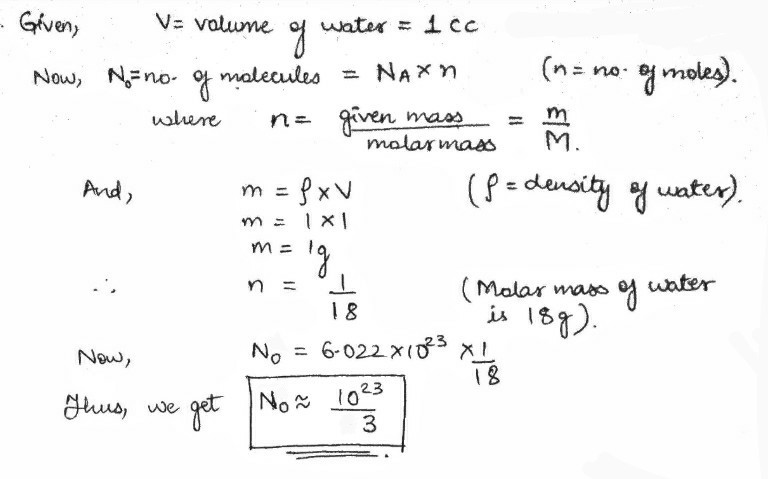 Given, V = volume of water = 1 cc
Now, N₀ = no. of molecules = NA × n (n = no. of moles).
where n = given mass / molar mass = m / M.
And, m = ρ × V (ρ = density of water).
m = 1 × 1
m = 1g
∴ n = 1 / 18 (Molar mass of water is 18g).
Now, N₀ = 6.022 × 10²³ × 1 / 18
Thus, we get N₀ ≈ 10²³ / 3